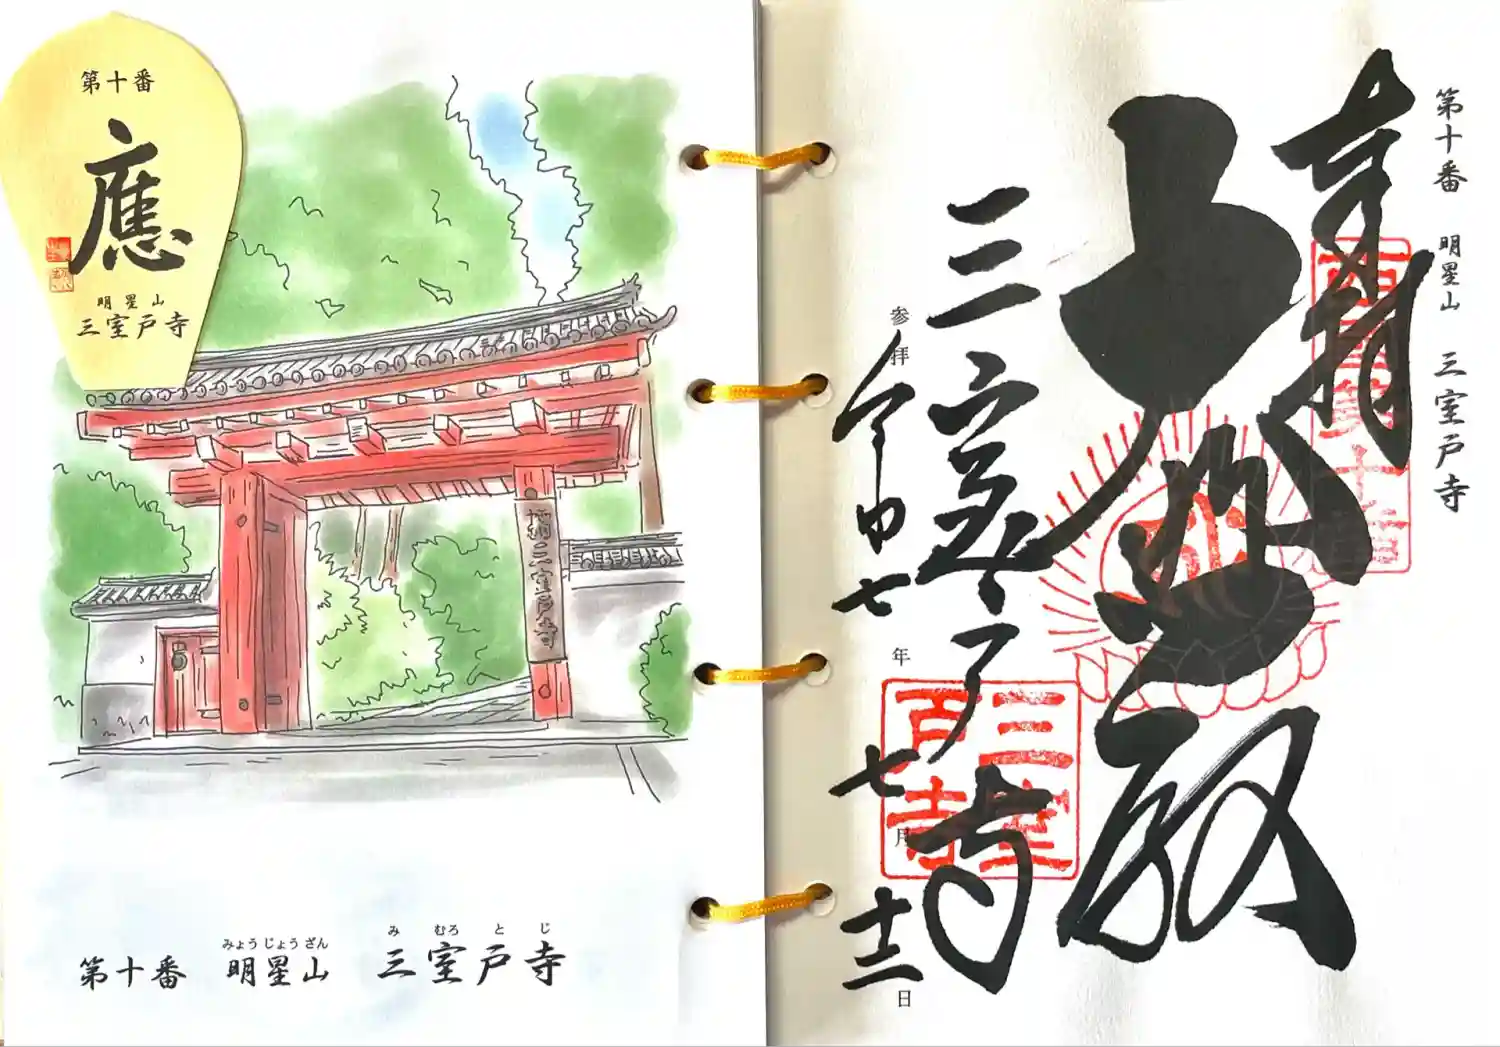 第十番
應
明星山
三室戸寺
三室戸寺
みょうじょうざん み むろ と じ
第十番 明星山 三室戸寺
第十番 明星山 三室戸寺
奉拝
大悲殿
三室戸寺
参拝 令和七年七月十三日